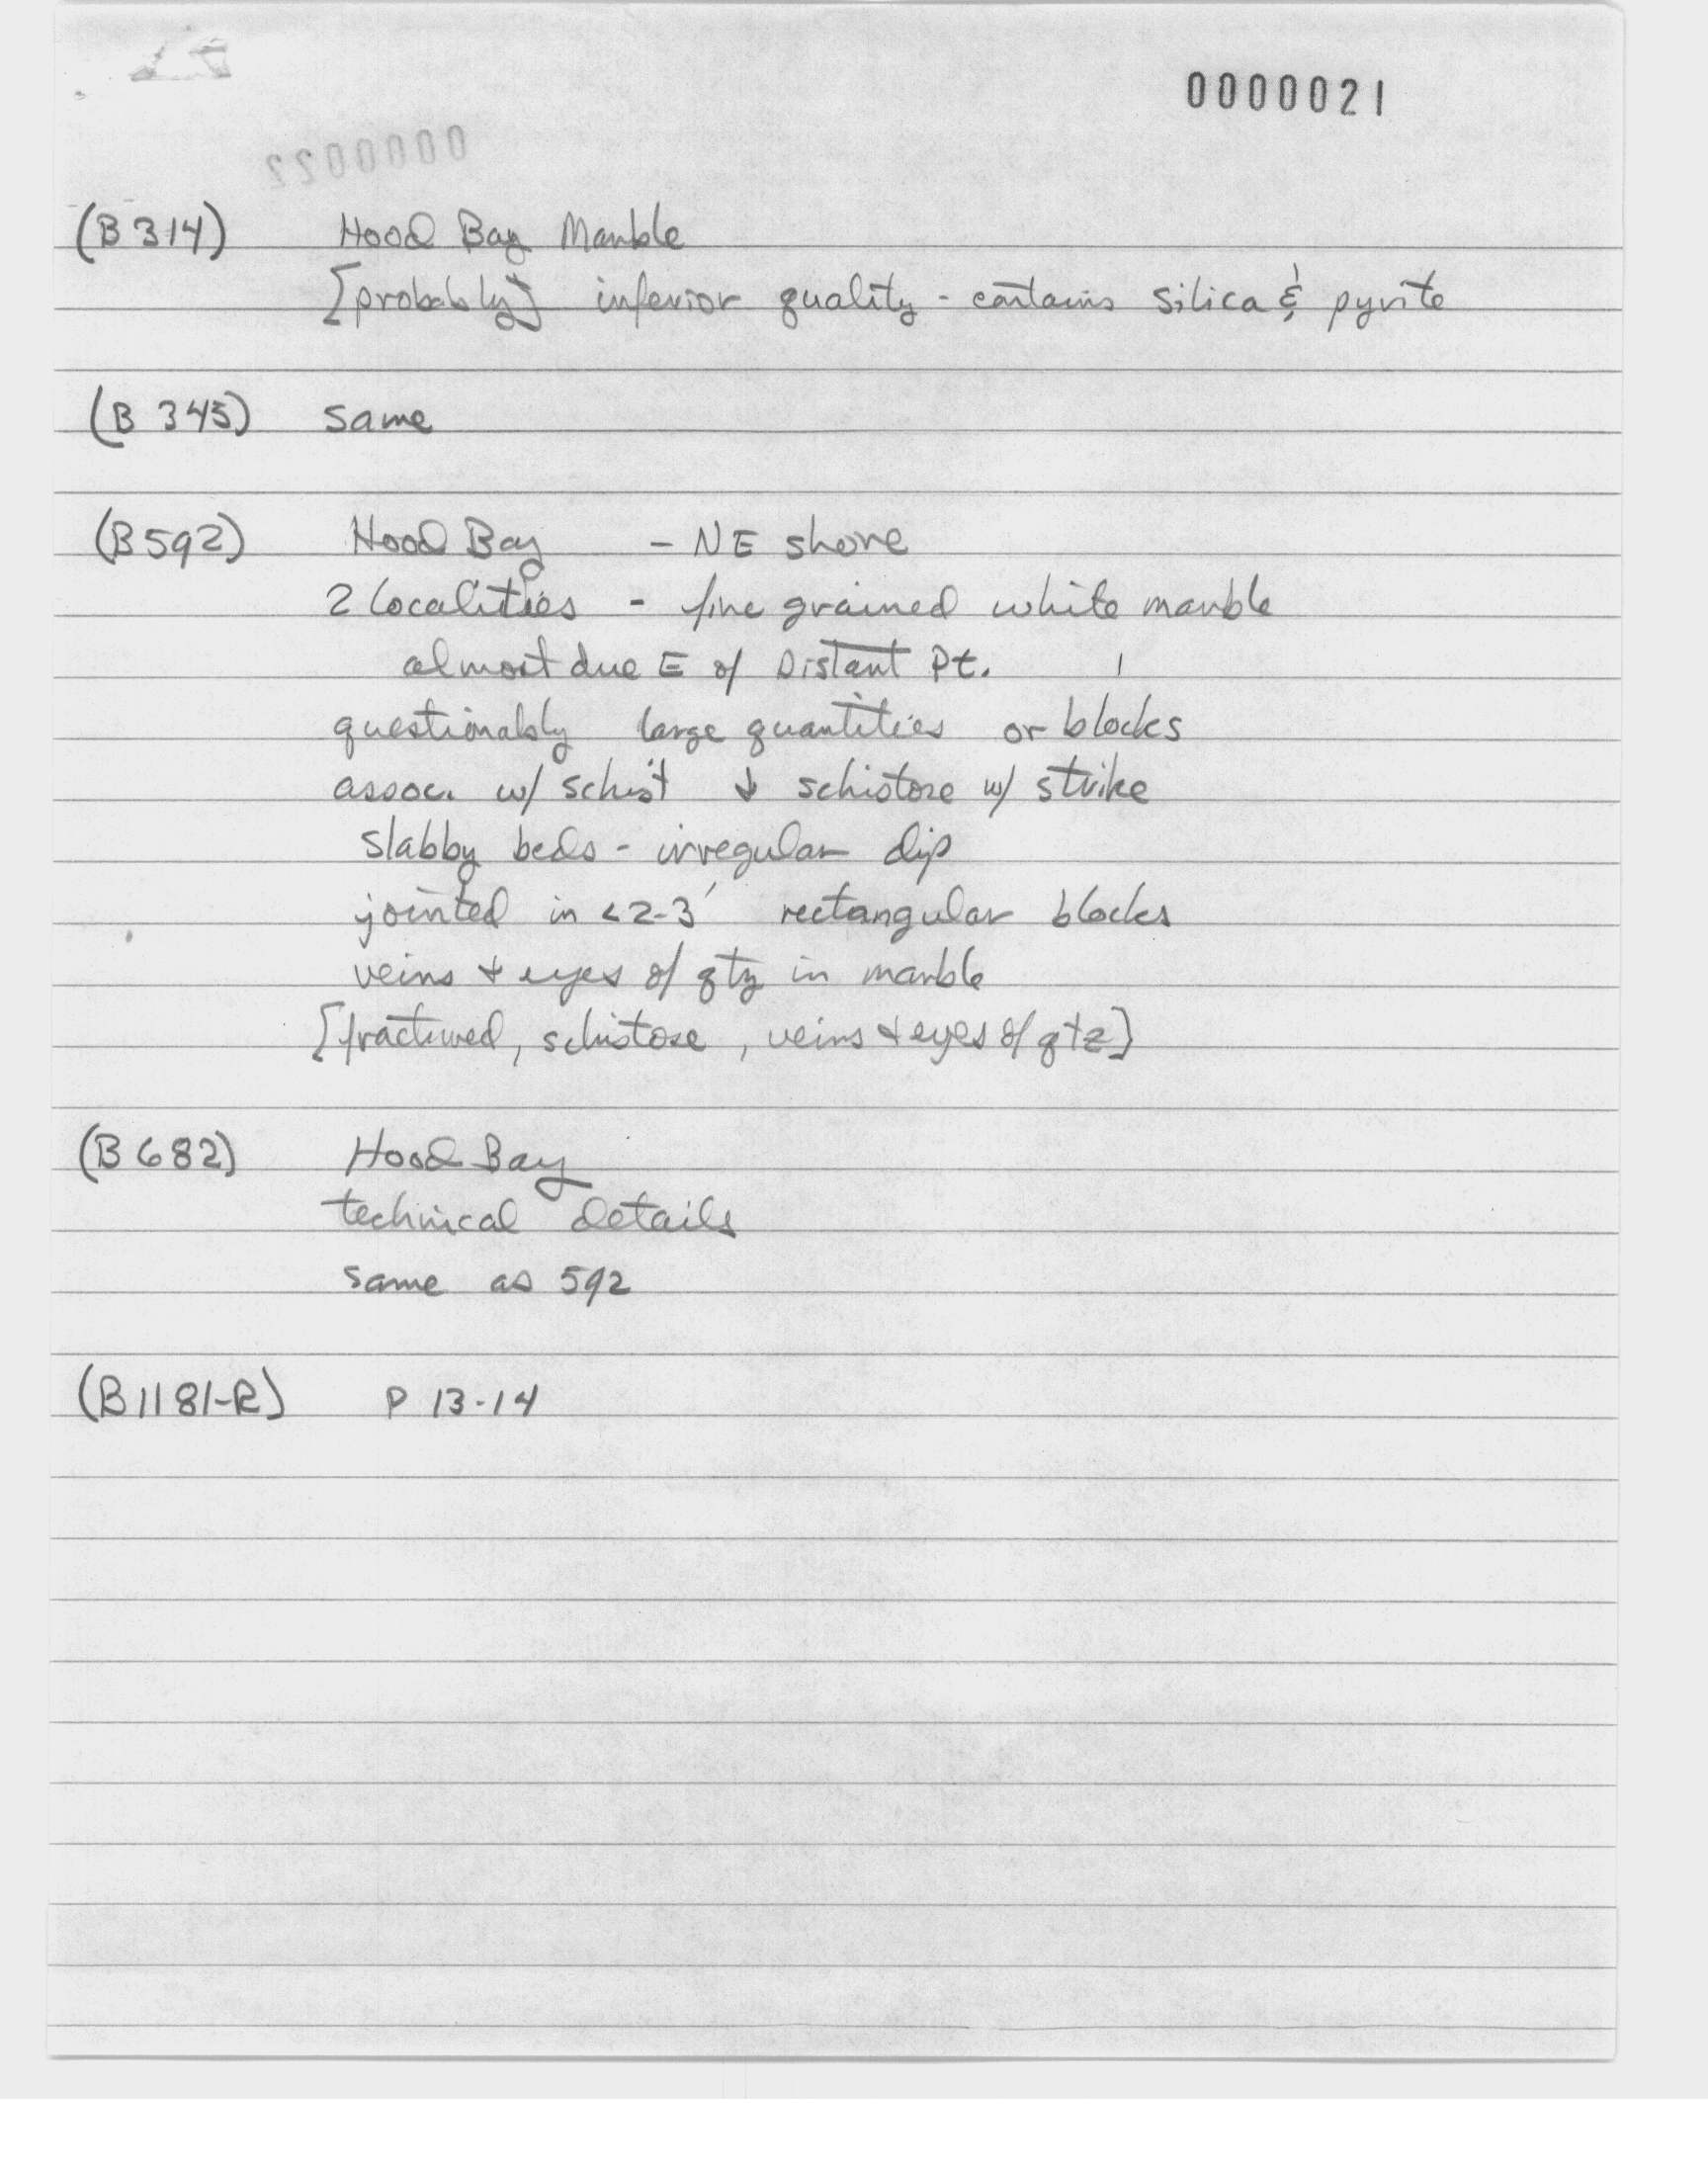 0000021
0000022
(B 314) Hood Bay Marble
[probably] inferior quality - contains silica & pyrite
(B 345) same
(B 592) Hood Bay - NE shore
2 localities - fine grained white marble
almost due E of Distant Pt.
questionably large quantities or blocks
assoc. w/ schist & schistose w/ strike
slabby beds - irregular dip
jointed in <2-3' rectangular blocks
veins & eyes of qtz in marble
[fractured, schistose, veins & eyes of qtz]
(B 682) Hood Bay
technical details
same as 592
(B1181-R) P 13-14